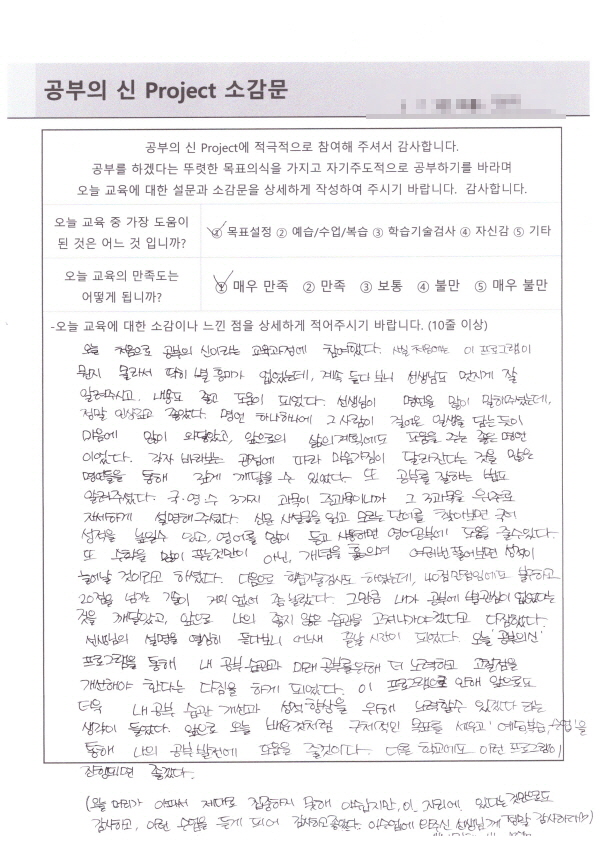 공부의 신 Project 소감문
공부의 신 Project에 적극적으로 참여해 주셔서 감사합니다.
공부를 하겠다는 뚜렷한 목표의식을 가지고 자기주도적으로 공부하기를 바라며
오늘 교육에 대한 설문과 소감문을 상세하게 작성하여 주시기 바랍니다. 감사합니다.
오늘 교육 중 가장 도움이
된 것은 어느 것 입니까?
① 목표설정 ② 예습/수업/복습 ③ 학습기술검사 ④ 자신감 ⑤ 기타
오늘 교육의 만족도는
어떻게 됩니까?
① 매우 만족 ② 만족 ③ 보통 ④ 불만 ⑤ 매우 불만
-오늘 교육에 대한 소감이나 느낀 점을 상세하게 적어주시기 바랍니다. (10줄 이상)
오늘 처음으로 공부의 신이라는 교육과정에 참여했다. 사실 처음에는 이 프로그램이
뭔지 몰라서 딱히 별 흥미가 없었는데, 계속 듣다 보니 선생님도 멋지게 잘
알려주시고, 내용도 좋고 도움이 되었다. 선생님이 명언을 많이 말해주셨는데,
정말 인상깊고 좋았다. 명언 하나하나에 그 사람이 걸어온 일생을 담는 듯이
마음에 많이 와닿았고, 앞으로의 삶의 계획에도 도움을 주는 좋은 명언
이었다. 각자 바라보는 관점에 따라 마음가짐이 달라진다는 것을 많은
명언들을 통해 깊게 깨달을 수 있었다. 또 공부를 잘하는 법도
알려주셨다. 국·영·수 3가지 과목이 주과목이니까 그 3과목을 위주로
자세하게 설명해주셨다. 신문 사설들을 읽고 모르는 단어를 찾아보면 국어
성적을 높일수 있고, 영어를 많이 듣고 사용하면 영어공부에 도움을 줄수있다.
또 수학을 많이 푸는것만이 아닌, 개념을 훑으며 여러번 풀어보면 성적이
늘어날 것이라고 하셨다. 다음으로 학습기술검사도 하였는데, 40점만점임에도 불구하고
20점을 넘는 것이 거의 없어 좀 놀랐다. 그만큼 내가 공부에 별관심이 없었다는
것을 깨달았고, 앞으로 나의 좋지 않은 습관을 고쳐나가야겠다고 다짐했다.
선생님의 설명을 열심히 듣다보니 어느새 끝날 시간이 되었다. 오늘 '공부의신'
프로그램을 통해 내 공부 습관과 미래 공부를위해 더 노력하고 고칠점을
개선해야 한다는 다짐을 하게 되었다. 이 프로그램으로 인해 앞으로도
더욱 내 공부 습관 개선과 성적 향상을 위해 노력할수 있겠다 라는
생각이 들었다. 앞으로 오늘 배운것처럼 구체적인 목표를 세우고 '예습,복습,수업'을
통해 나의 공부 발전에 도움을 줄것이다. 다음 학교에도 이런 프로그램이
진행되면 좋겠다.
(오늘 머리가 아파서 제대로 집중하지 못해 아쉽지만, 이 자리에 있다는 것만으로도
감사하고, 이런 수업을 듣게 되어 감사하고좋았다. 이수업에 선생님께 정말 감사하다